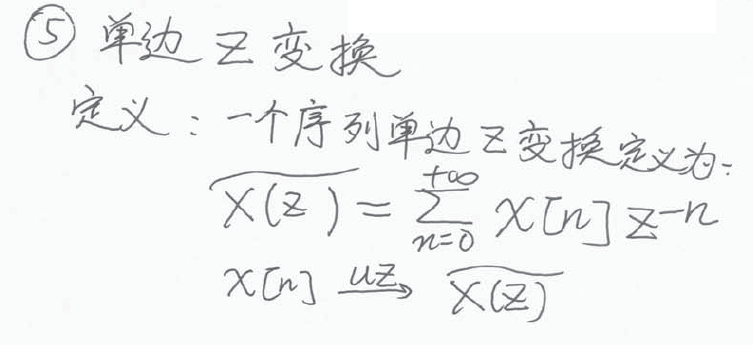 ⑤ 单边 Z 变换
定义：一个序列单边Z变换定义为：
$\widehat{X(Z)} = \sum_{n=0}^{+\infty} x[n] z^{-n}$
$x[n] \xrightarrow{uZ} \widehat{X(Z)}$